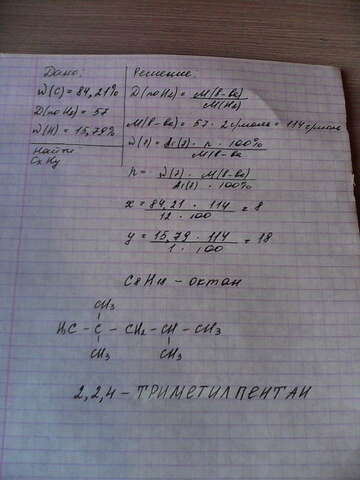 Дано:
W(C) = 84,21%
D(по H₂) = 57
W(H) = 15,79%
Найти
CxHy
Решение:
D(по H₂) = M(в-ва) / M(H₂)
M(в-ва) = 57 · 2 г/моль = 114 г/моль
W(э) = Ar(э) · n · 100% / M(в-ва)
n = W(э) · M(в-ва) / Ar(э) · 100%
x = 84,21 · 114 / 12 · 100 = 8
y = 15,79 · 114 / 1 · 100 = 18
C8H18 - октан
CH₃
H₃C - C - CH₂ - CH - CH₃
CH₃ CH₃
2,2,4 - ТРИМЕТИЛПЕНТАН